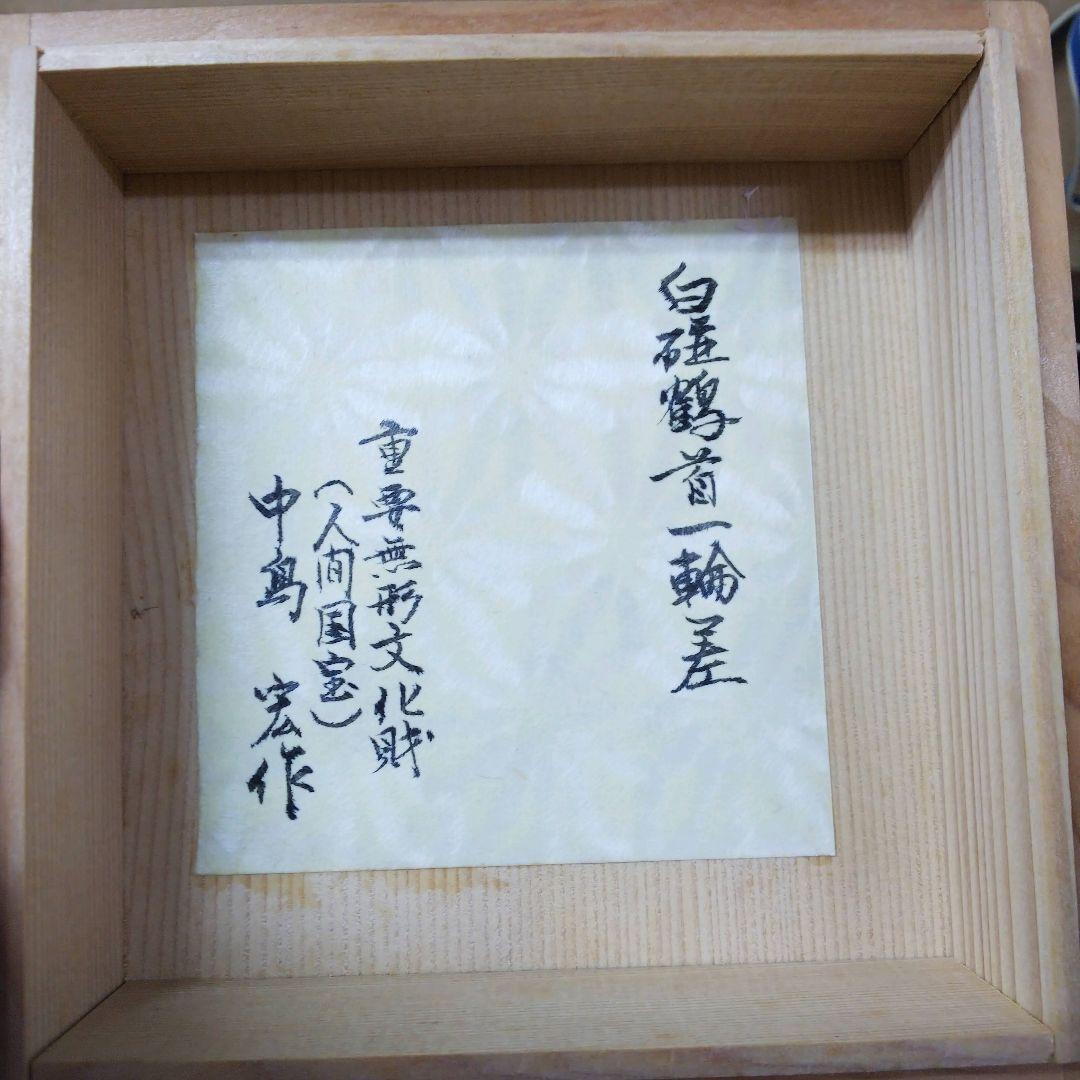 白磁鶴首一輪差
重要無形文化財
(人間国宝)
中島 宏作